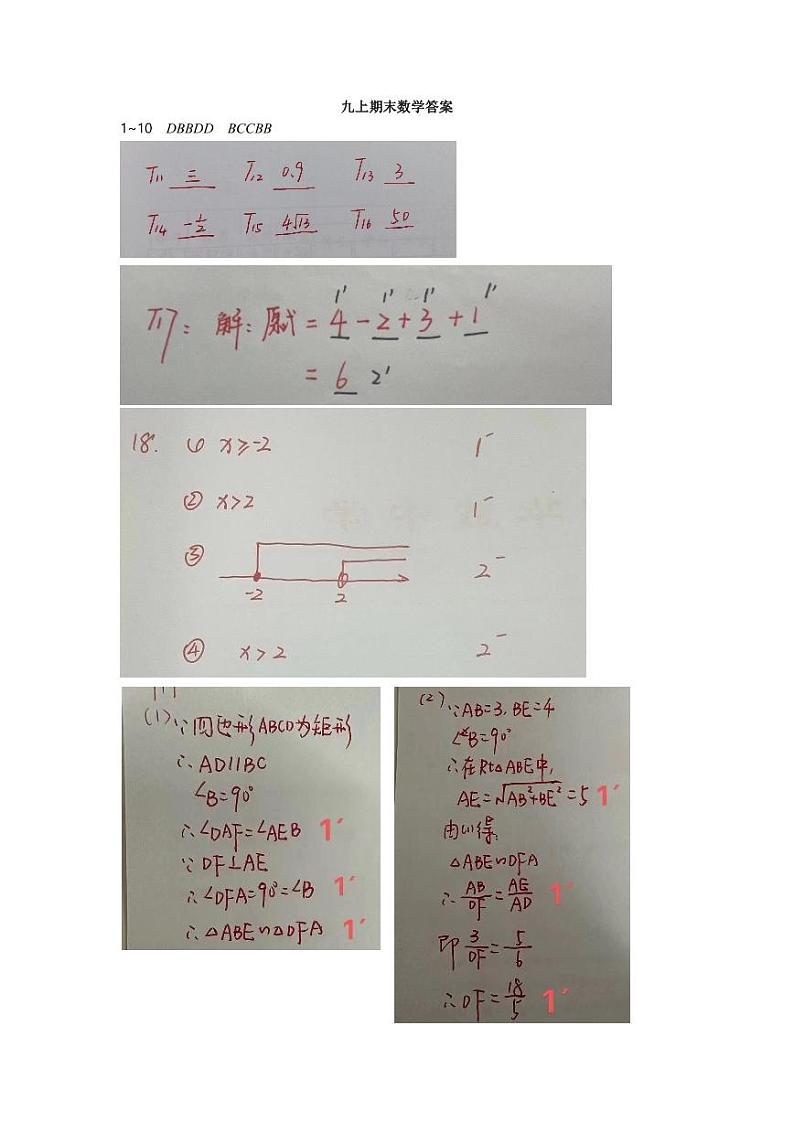 九上期末数学答案
1~10 DBBDD BCCBB
T11 三 T12 0.9 T13 3
T14 -1/2 T15 4√13 T16 50
1' 1' 1' 1'
T17: 解:原式 = 4 - 2 + 3 + 1
= 6 2'
18. ① x≥-2 1'
② x>2 1'
③ 2'
-2 2
④ x>2 2'
(1) ∵四边形ABCD为矩形
∴AD∥BC
∠B=90°
∴∠DAF=∠AEB 1′
∵DF⊥AE
∴∠DFA=90°=∠B 1′
∴△ABE∽△DFA 1′
(2) ∵AB=3, BE=4
∠B=90°
∴在Rt△ABE中,
AE=√AB²+BE²=5 1′
由(1)得:
△ABE∽DFA
∴AB/DF=AE/AD 1′
即3/DF=5/6
∴DF=18/5 1′